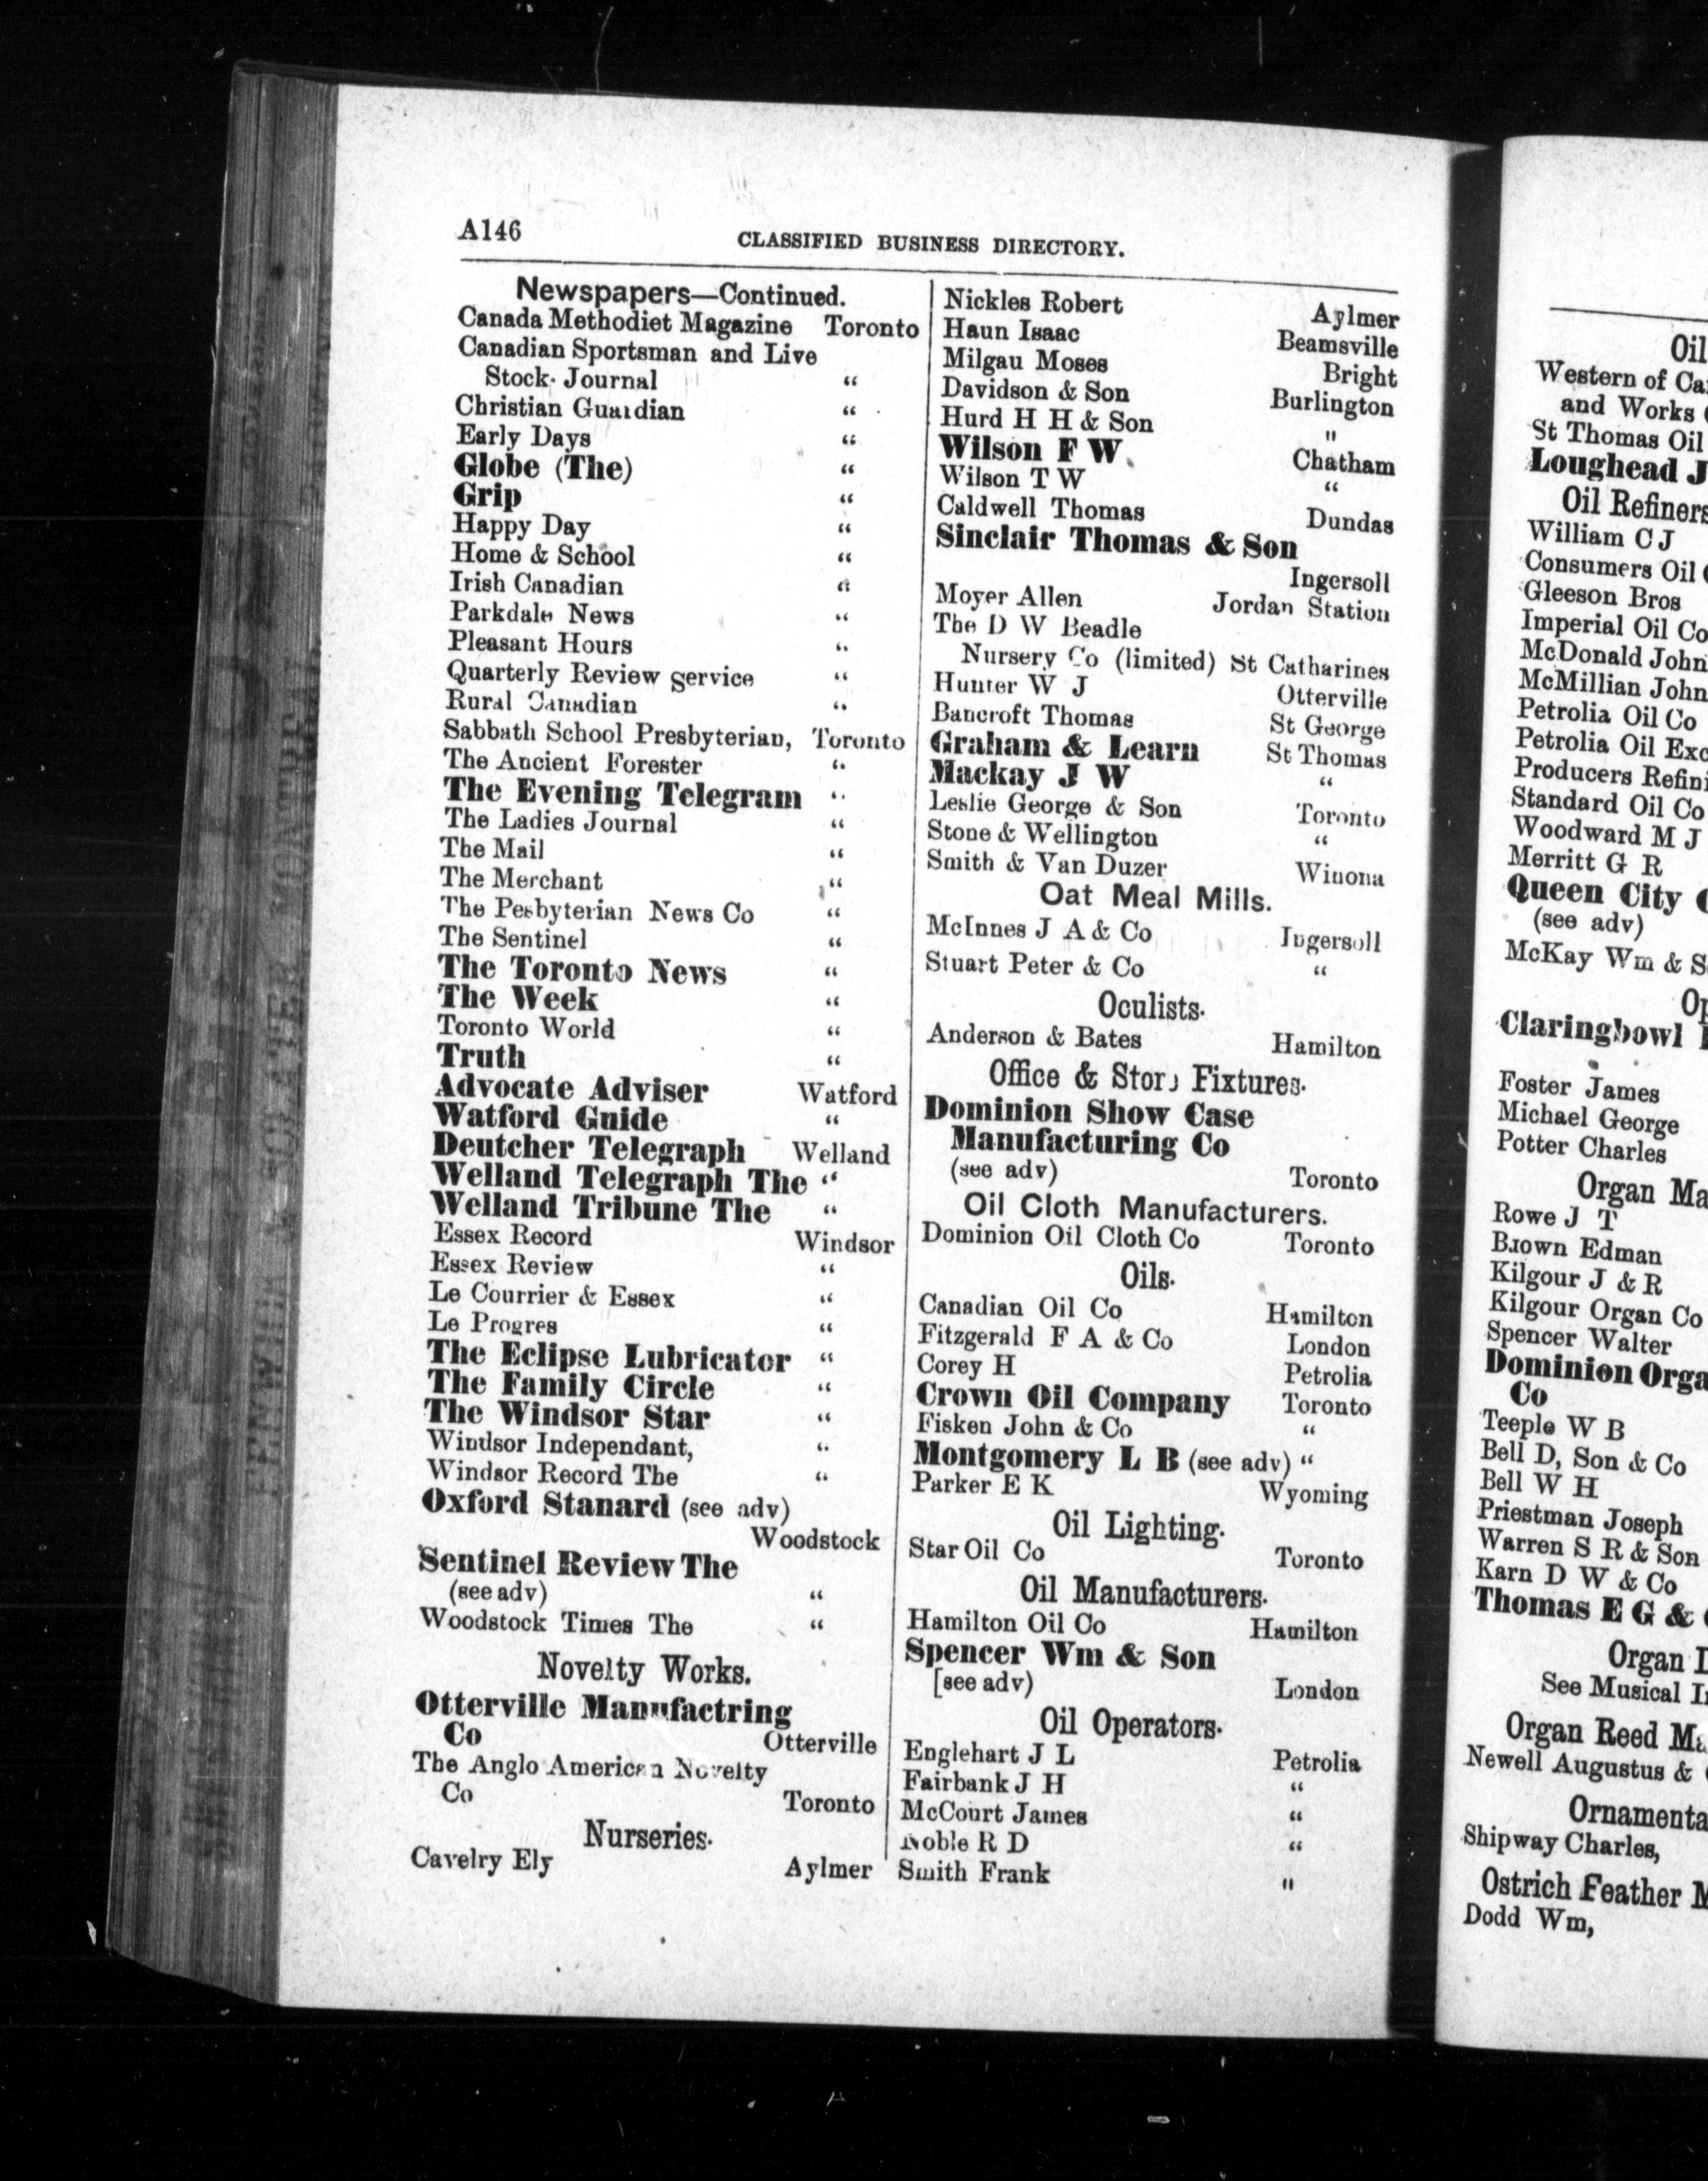 A146
CLASSIFIED BUSINESS DIRECTORY.
Newspapers—Continued.
Canada Methodiet Magazine Toronto
Canadian Sportsman and Live
Stock Journal “
Christian Guardian “
Early Days “
Globe (The) “
Grip “
Happy Day “
Home & School “
Irish Canadian “
Parkdale News “
Pleasant Hours “
Quarterly Review service “
Rural Canadian “
Sabbath School Presbyterian, Toronto
The Ancient Forester “
The Evening Telegram “
The Ladies Journal “
The Mail “
The Merchant “
The Pesbyterian News Co “
The Sentinel “
The Toronto News “
The Week “
Toronto World “
Truth “
Advocate Adviser Watford
Watford Guide “
Deutcher Telegraph Welland
Welland Telegraph The “
Welland Tribune The “
Essex Record Windsor
Essex Review “
Le Courrier & Essex “
Le Progres “
The Eclipse Lubricator “
The Family Circle “
The Windsor Star “
Windsor Independant, “
Windsor Record The “
Oxford Stanard (see adv)
Woodstock
Sentinel Review The
(see adv) “
Woodstock Times The “
Novelty Works.
Otterville Manufactring
Co Otterville
The Anglo American Novelty
Co Toronto
Nurseries.
Cavelry Ely Aylmer
Nickles Robert Aylmer
Haun Isaac Beamsville
Milgau Moses Bright
Davidson & Son Burlington
Hurd H H & Son "
Wilson F W Chatham
Wilson T W “
Caldwell Thomas Dundas
Sinclair Thomas & Son
Ingersoll
Moyer Allen Jordan Station
The D W Beadle
Nursery Co (limited) St Catharines
Hunter W J Otterville
Bancroft Thomas St George
Graham & Learn St Thomas
Mackay J W “
Leslie George & Son Toronto
Stone & Wellington “
Smith & Van Duzer Winona
Oat Meal Mills.
McInnes J A & Co Ingersoll
Stuart Peter & Co “
Oculists.
Anderson & Bates Hamilton
Office & Store Fixtures.
Dominion Show Case
Manufacturing Co
(see adv) Toronto
Oil Cloth Manufacturers.
Dominion Oil Cloth Co Toronto
Oils.
Canadian Oil Co Hamilton
Fitzgerald F A & Co London
Corey H Petrolia
Crown Oil Company Toronto
Fisken John & Co “
Montgomery L B (see adv) “
Parker E K Wyoming
Oil Lighting.
Star Oil Co Toronto
Oil Manufacturers.
Hamilton Oil Co Hamilton
Spencer Wm & Son
[see adv) London
Oil Operators.
Englehart J L Petrolia
Fairbank J H “
McCourt James “
Noble R D “
Smith Frank "
Oil
Western of
and Works
St Thomas Oil
Loughead J
Oil Refiners
William C J
Consumers Oil
Gleeson Bros
Imperial Oil Co
McDonald John
McMillian John
Petrolia Oil Co
Petrolia Oil
Producers
Standard Oil Co
Woodward M J
Merritt G R
Queen City
(see adv)
McKay Wm &
Claringbowl
Foster James
Michael George
Potter Charles
Organ
Rowe J T
Brown Edman
Kilgour J & R
Kilgour Organ Co
Spencer Walter
Dominion
Co
Teeple W B
Bell D, Son & Co
Bell W H
Priestman Joseph
Warren S R & Son
Karn D W & Co
Thomas E G &
Organ
See Musical
Organ Reed
Newell Augustus &
Shipway Charles,
Ostrich Feather
Dodd Wm,